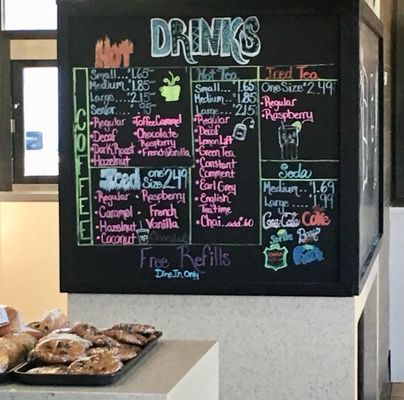 DRINKS
Hot
Small.... 1.65
Medium... 1.85
Large..... 2.15
Senior .95
Regular
Decaf
Dark Roast
Hazelnut
Toffee Caramel
Chocolate
Raspberry
French Vanilla
COFFEE
Iced
One Size 2.49
Regular
Caramel
Hazelnut
Coconut
Raspberry
French
Vanilla
Hot Tea
Small..... 1.65
Medium.. 1.85
Large..... 2.15
Regular
Decaf
Lemon Lift
Green Tea
Constant
Comment
Earl Grey
English
Teatime
Chai...add .60
Iced Tea
One Size 2.49
Regular
Raspberry
Soda
Medium... 1.69
Large..... 1.99
Coca Cola
Coke
Sprite
Free Refills
Dine In Only